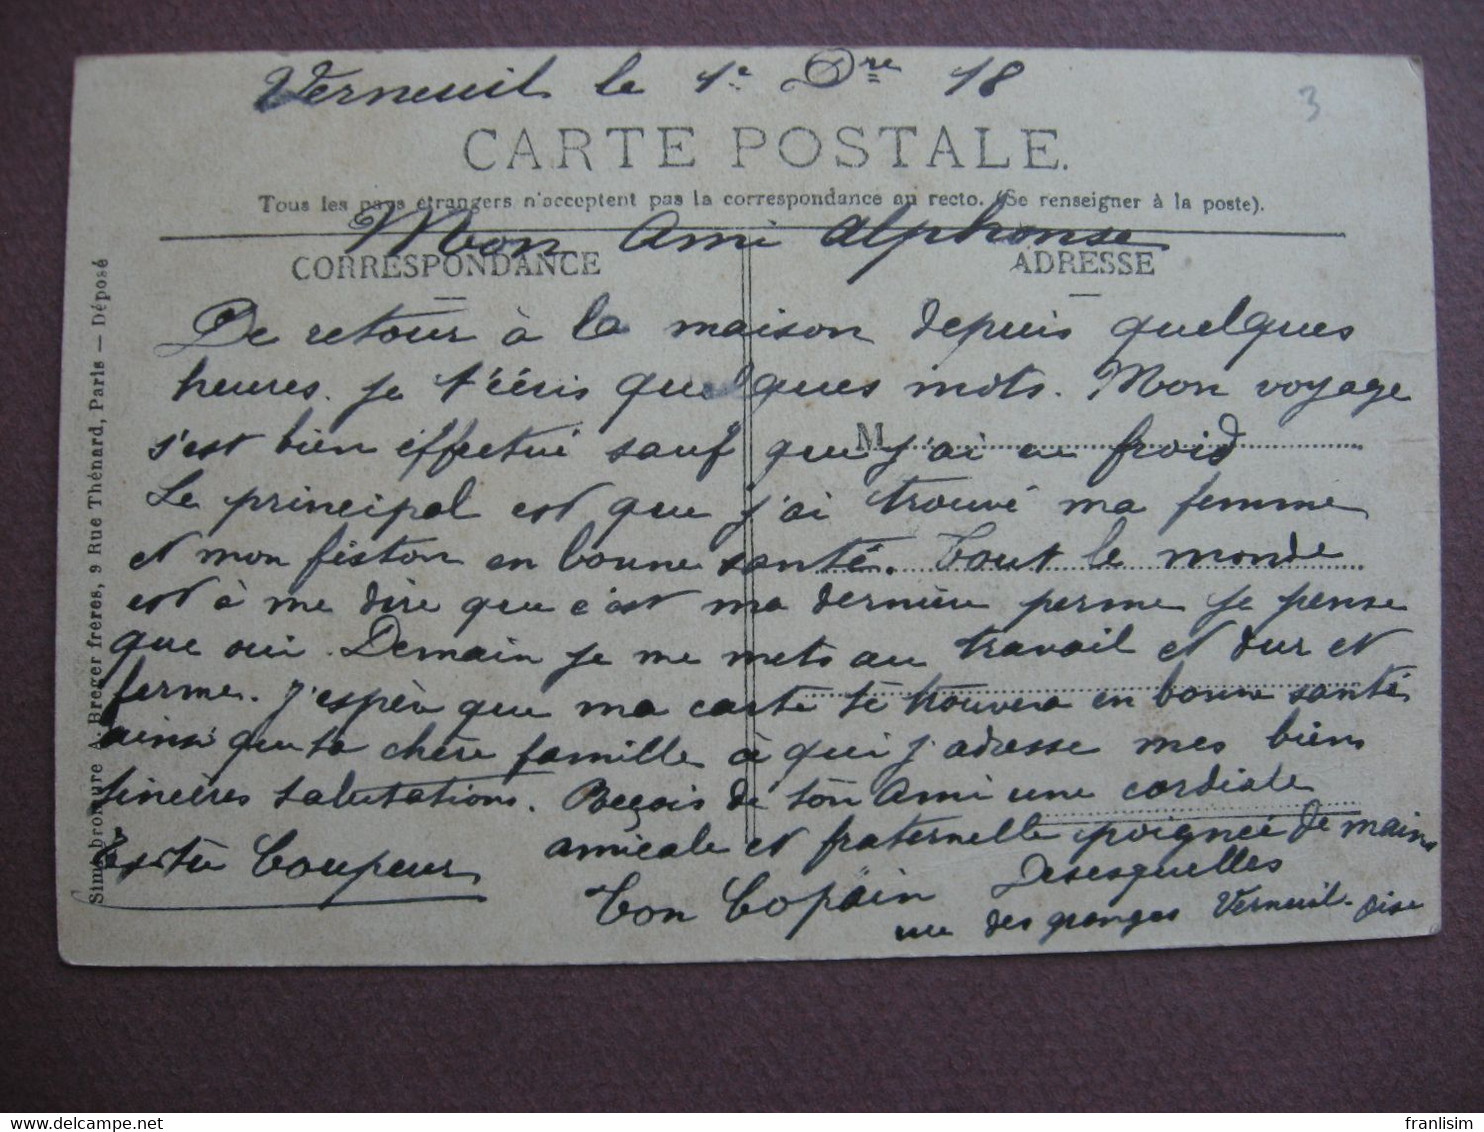 Verneuil le 1e Dre 18
3
CARTE POSTALE.
Tous les pays étrangers n'acceptent pas la correspondance au recto. (Se renseigner à la poste).
Mon Ami Alphonse
CORRESPONDANCE
ADRESSE
De retour à la maison depuis quelques
heures. je t'écris quelques mots. Mon voyage
s'est bien éffectué sauf que j'ai eu froid
M
Le principal est que j'ai trouvé ma femme
et mon fiston en bonne santé. Tout le monde
est à me dire que c'est ma dernière perme je pense
que oui. Demain je me mets au travail et dur et
ferme. J'espèr que ma carte te trouvera en bonne santé
ainsi que ta chère famille à qui j'adresse mes biens
sincères salutations. Reçois de ton Ami une cordiale
amicale et fraternelle poignée de mains
Coupeur
Ton Copain Desesquelles
rue des granges Verneuil. Oise
Simi-bromure A. Breger frères, 9 Rue Thénard, Paris — Déposé
franlisim
delcampe.net